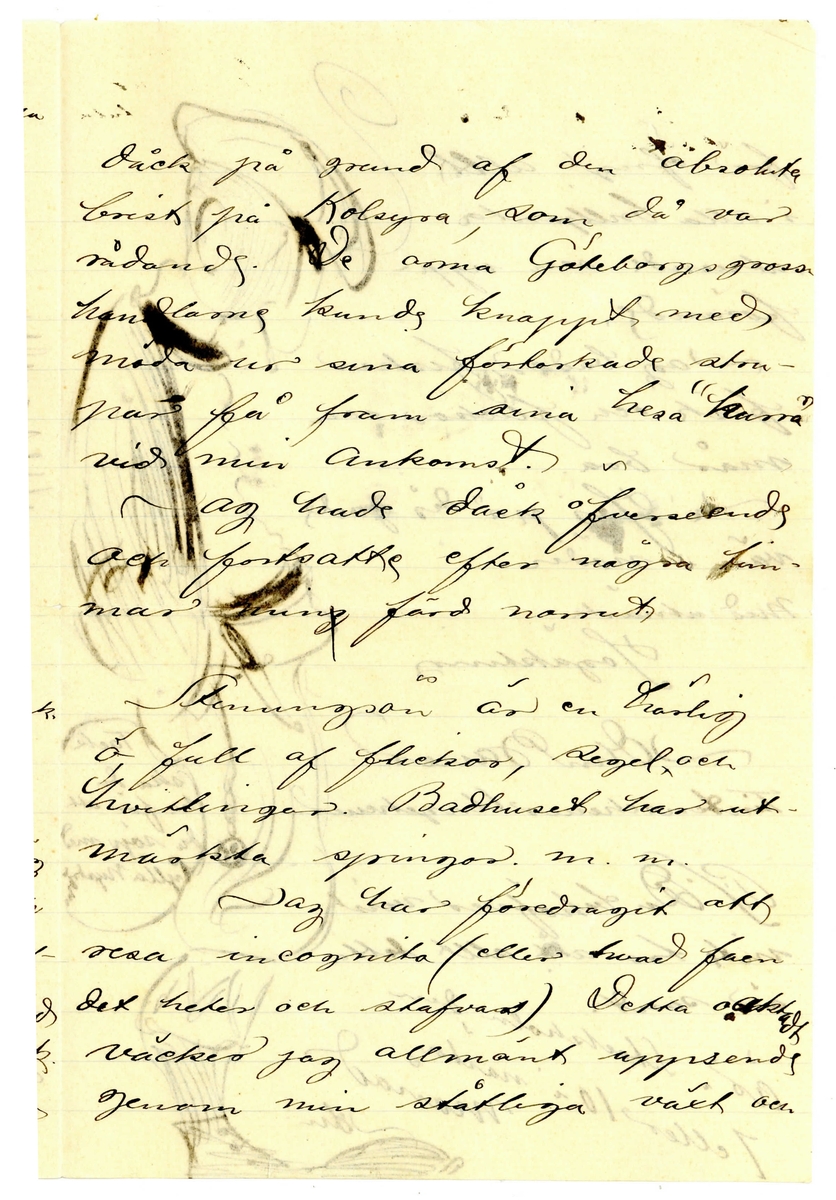 dåck på grund af den absoluta
brist på Kolsyra, som då var
rådande. De arma Göteborgsgross
handlarne kunde knappt med
möda ur sina förtorkade stru-
par få fram sina hesa "hurra"
vid min ankomst.
Jag hade dåck öfverseende
och fortsatte efter några tim-
mar min färd norrut.
är en härlig
ö, full af flickor, segel, och
hvitlingar. Badhuset har ut-
märkta springor. m. m.
Jag har föredragit att
resa incognito (eller hvad faen
det heter och stafvas) Detta oaktadt
väcker jag allmänt uppseende
genom min ståtliga växt och